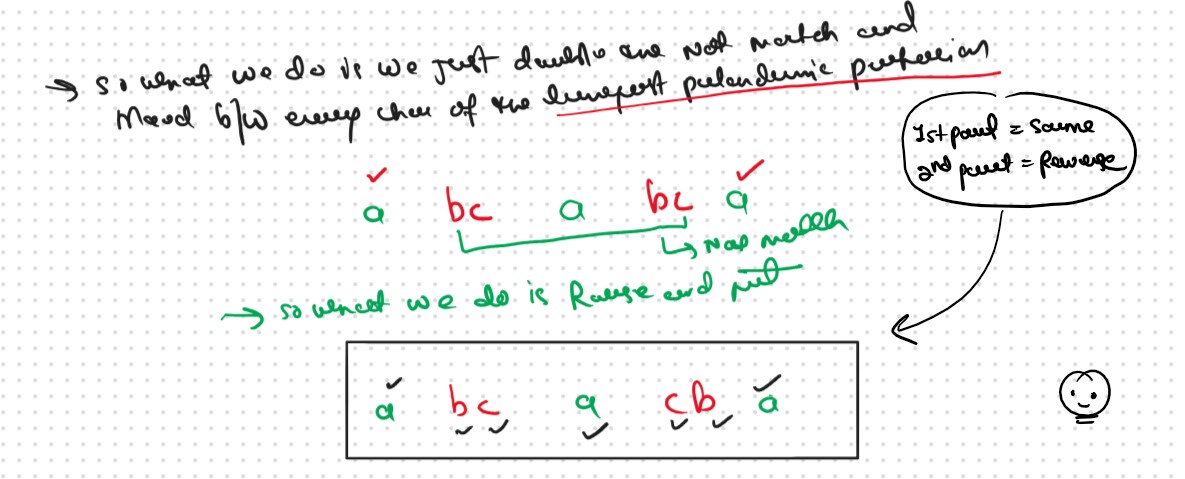 → so what we do is we just double the Not match and
Mand b/w every char of the longest palendromic partician
1st part = Same
2nd part = Reverge
a bc a bc a
↳ Not match
→ so what we do is Rause and put
a bc a cb a